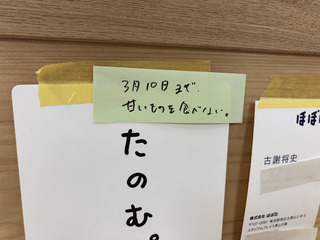 3月10日まで、
甘いものを食べない。
たのむ。
ほぼ
古謝将史
株式会社 ほぼ日